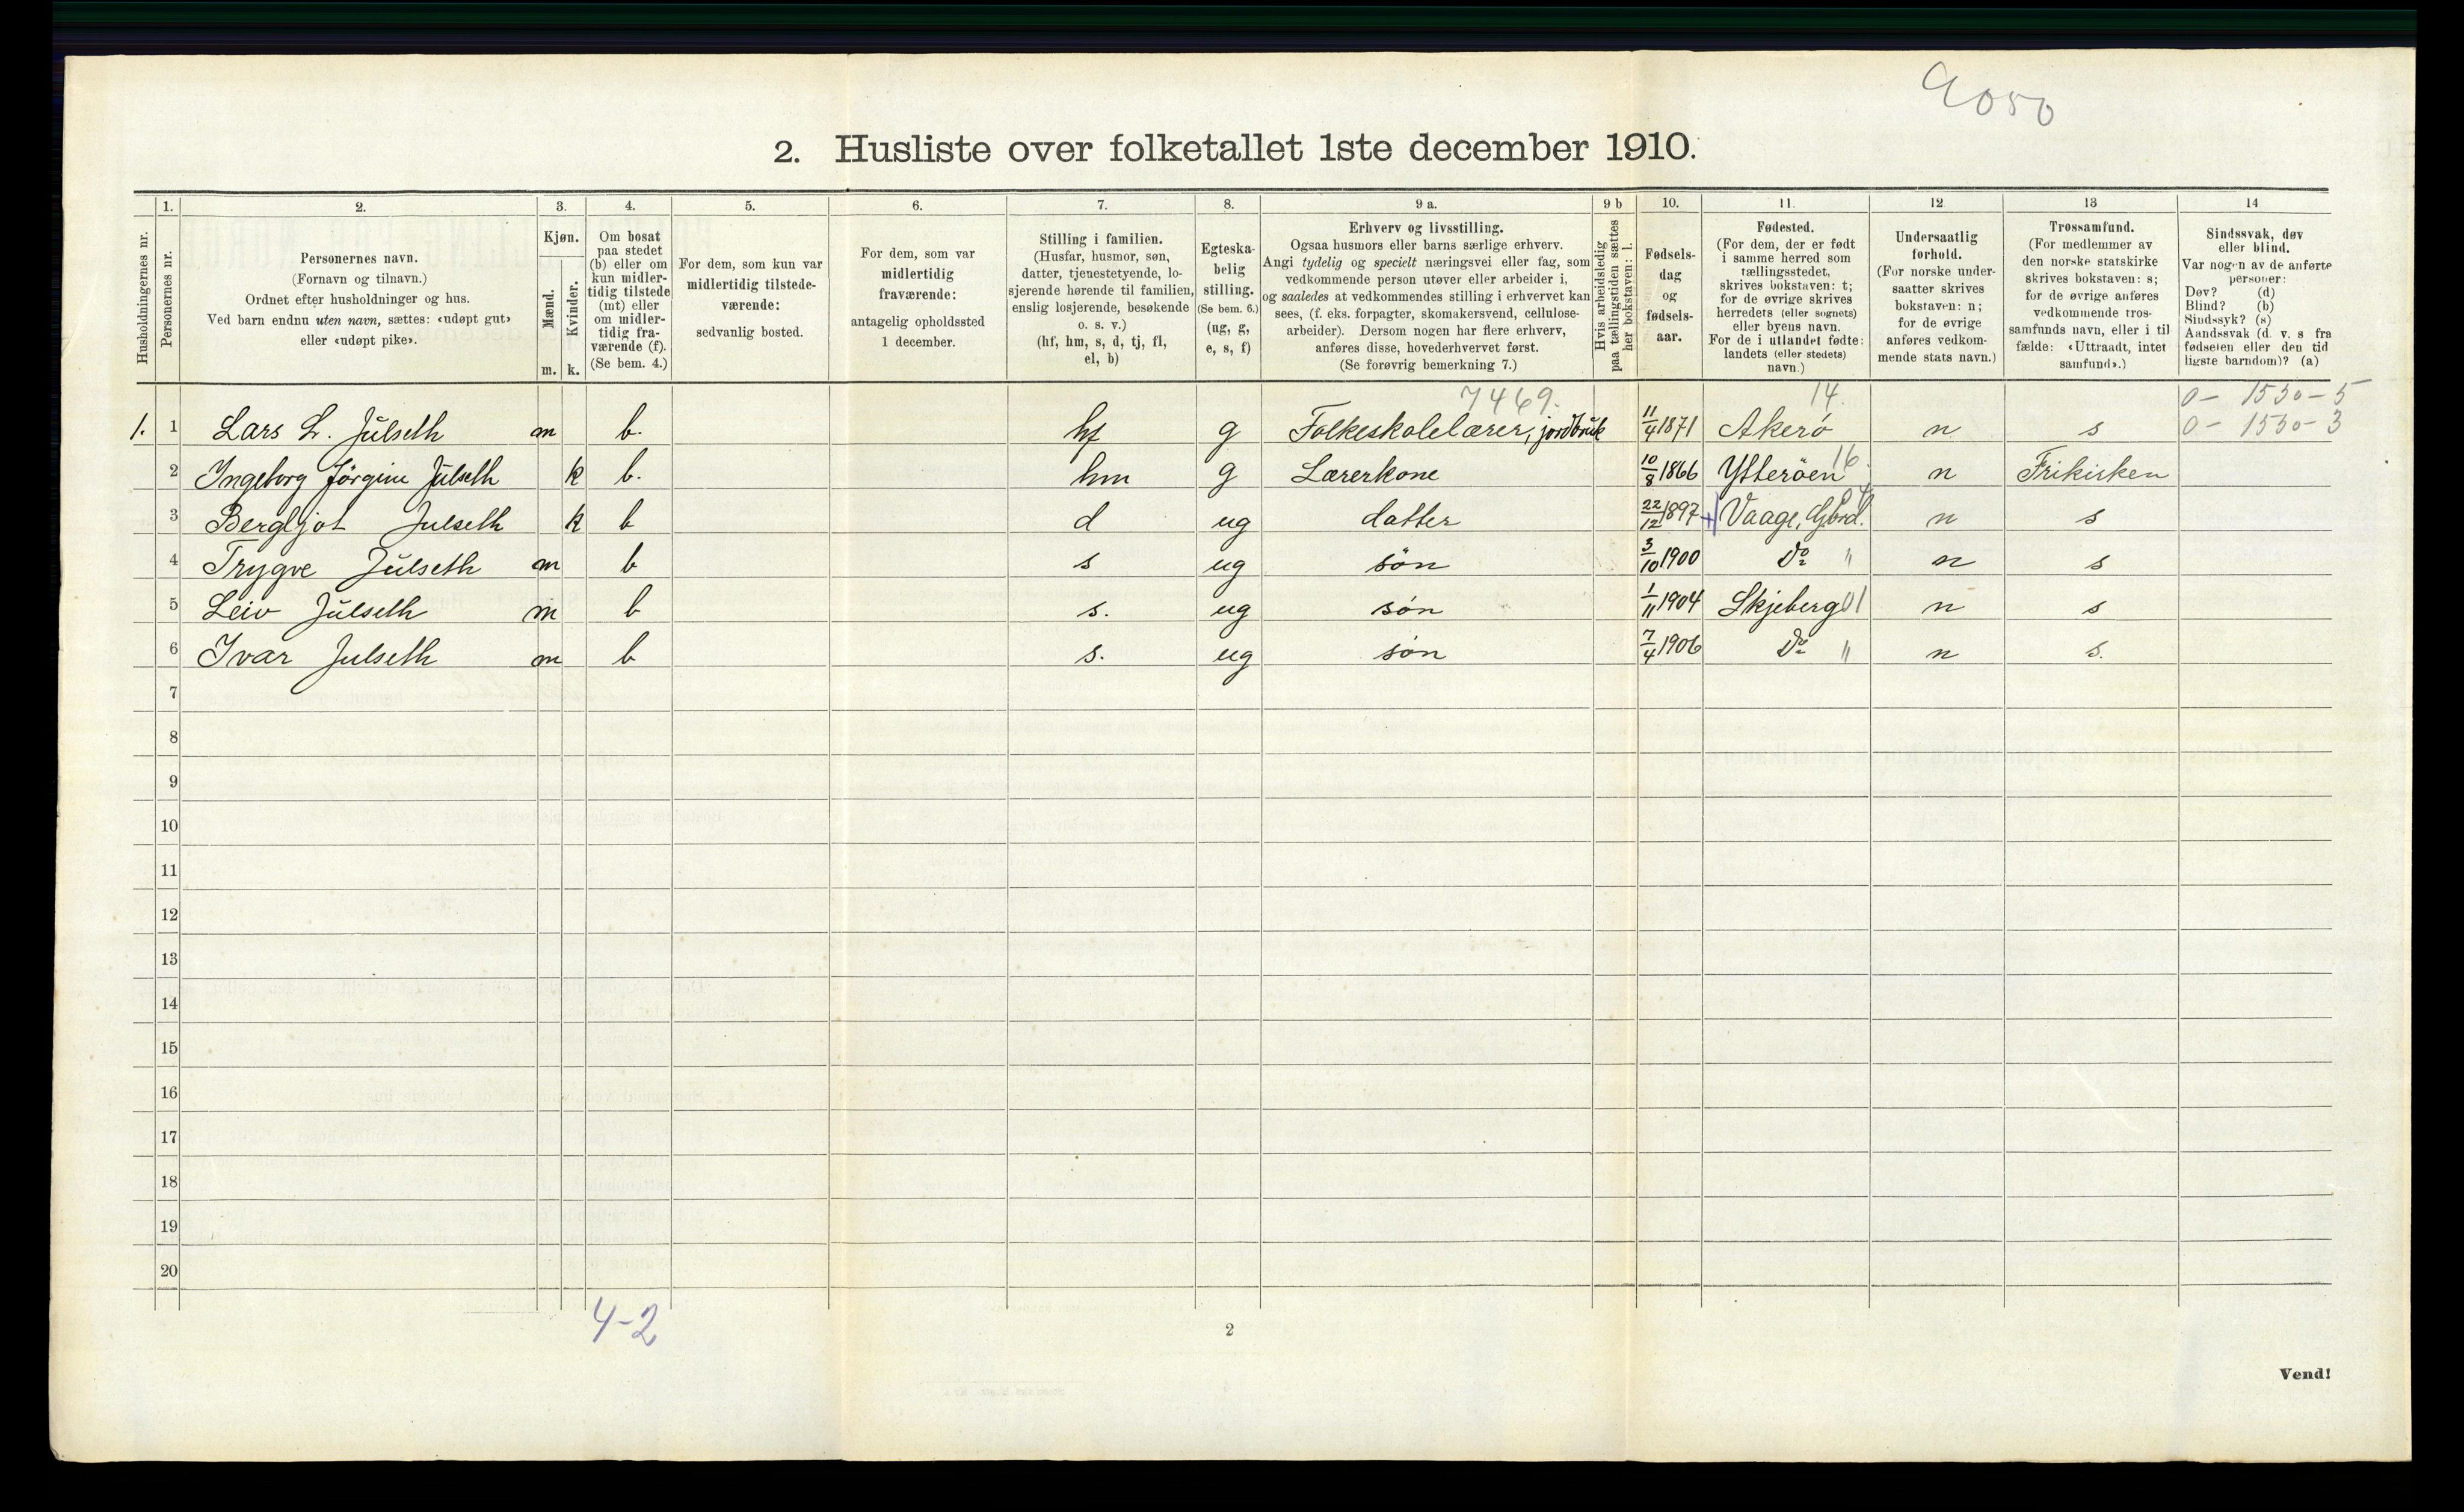 9050
2. Husliste over folketallet 1ste december 1910.
Husholdningernes nr.
1. Personernes nr.
2. Personernes navn. (Fornavn og tilnavn.) Ordnet efter husholdninger og hus. Ved barn endnu uten navn, sættes: «udøpt gut» eller «udøpt pike».
3. Kjøn. Mænd. m. Kvinder. k.
4. Om bosat paa stedet (b) eller om kun midlertidig tilstede (mt) eller om midlertidig fraværende (f). (Se bem. 4.)
5. For dem, som kun var midlertidig tilstedeværende: sedvanlig bosted.
6. For dem, som var midlertidig fraværende: antagelig opholdssted 1 december.
7. Stilling i familien. (Husfar, husmor, søn, datter, tjenestetyende, losjerende hørende til familien, enslig losjerende, besøkende o. s. v.) (hf, hm, s, d, tj, fl, el, b)
8. Egteskabelig stilling. (Se bem. 6.) (ug, g, e, s, f)
9 a. Erhverv og livsstilling. Ogsaa husmors eller barns særlige erhverv. Angi tydelig og specielt næringsvei eller fag, som vedkommende person utøver eller arbeider i, og saaledes at vedkommendes stilling i erhvervet kan sees, (f. eks. forpagter, skomakersvend, cellulosearbeider). Dersom nogen har flere erhverv, anføres disse, hovederhvervet først. (Se forøvrig bemerkning 7.)
9 b Hvis arbeidsledig paa tællingstiden sættes her bokstaven: l.
10. Fødselsdag og fødselsaar.
11. Fødested. (For dem, der er født i samme herred som tællingsstedet, skrives bokstaven: t; for de øvrige skrives herredets (eller sognets) eller byens navn. For de i utlandet fødte: landets (eller stedets) navn.)
12 Undersaatlig forhold. (For norske undersaatter skrives bokstaven: n; for de øvrige anføres vedkommende stats navn.)
13 Trossamfund. (For medlemmer av den norske statskirke skrives bokstaven: s; for de øvrige anføres vedkommende trossamfunds navn, eller i tilfælde: «Uttraadt, intet samfund».)
14 Sindssvak, døv eller blind. Var nogen av de anførte personer: Døv? (d) Blind? (b) Sindssyk? (s) Aandssvak (d. v. s fra fødselen eller den tidligste barndom)? (a)
7469. 14. 0 - 1530 - 5
1. 1 Lars L. Julseth m b. hf g Folkeskolelærer, jordbruk 11/4 1871 Akerö n s 0 - 1530 - 3
2 Ingeborg Jørgine Julseth k b. hm g Lærerkone 10/8 1866 Ytterøen 16. n Frikirken
3 Bergljot Julseth k b d ug datter 22/12 1897 + Vaage, Gbrd. n s
4 Trygve Julseth m b s ug søn 3/10 1900 Do " n s
5 Leiv Julseth m b s. ug søn 1/11 1904 Skjeberg 01 n s
6 Ivar Julseth m b s. ug søn 7/4 1906 Do " n s.
7
8
9
10
11
12
13
14
15
16
17
18
19
20
4-2
2
Vend!